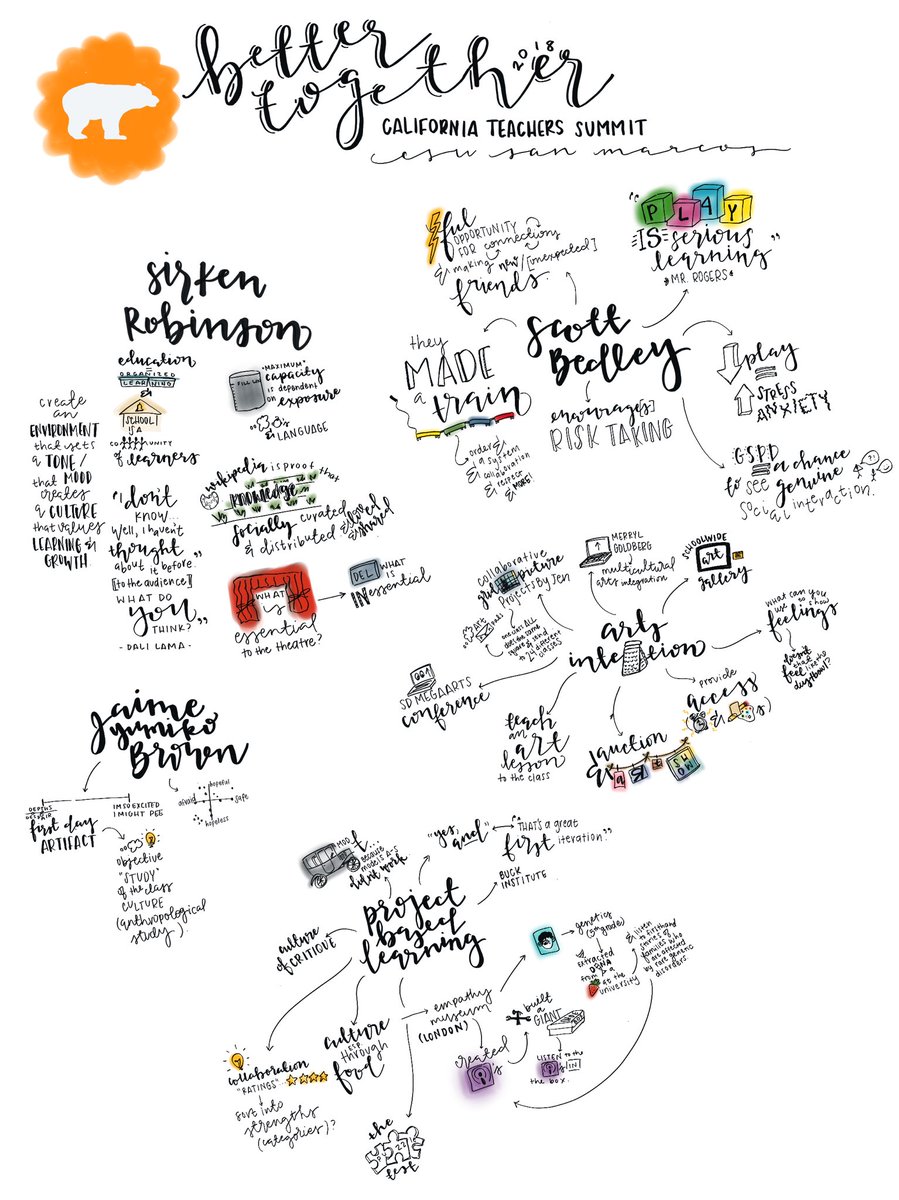 better
together
2018
CALIFORNIA TEACHERS SUMMIT
csu san marcos
Sir Ken
Robinson
education
=
ORGANIZED
LEARNING
&
SCHOOL
IS A
COMMUNITY
of learners
"MAXIMUM"
capacity
is dependent
on exposure
FILL LINE
& LANGUAGE
create
an
ENVIRONMENT
that sets
a TONE/
that MOOD
creates
a CULTURE
that values
LEARNING &
GROWTH.
"I don't
know...
Well, I haven't
thought
about it before."
[to the audience]
WHAT DO
you
THINK?"
- DALI LAMA -
wikipedia is PROOF that
KNOWLEDGE
is
socially curated
& distributed & loved
& shared
WHAT
is
essential
to the theatre?
DEL
WHAT
IS
INessential
Scott
Bedley
ful
OPPORTUNITY
FOR connections
& making new/[unexpected]
friends.
"PLAY
IS serious
learning"
MR. ROGERS
they
MADE
a
train
order
& a system
& collaboration
& respect
& MORE!
encourage[s]
RISK TAKING
play
=
STRESS
ANXIETY
G.S.P.D
= a chance
to see genuine
social interaction.
?!
arts
integration
collaborative
grid picture
Projects By Jen
ART
one class ALL
does the same
square & send
to 24 different
classes
MERRYL
GOLDBERG
multicultural
arts integration
SCHOOLWIDE
art
gallery
what can you
use to show
feelings
doesn't
that
feel like the
dust bowl?
provide
access
(& s)
SD MEGAARTS
conference
teach
an
art
lesson
to the class
auction
&
SHOW
Jaime
Yumiko
Brown
DEPTHS
DESPAIR
IM SO EXCITED
I MIGHT PEE
first day
ARTIFACT
hopeful
afraid
safe
hopeless
objective
"STUDY"
of the class
CULTURE
(anthropological
study)
project
based
learning
MODEL
T...
because
models A-S
didn't work
"yes, and"
"THAT'S a great
first iteration."
BUCK
INSTITUTE
culture
of CRITIQUE
collaboration
"RATINGS"
sort into
strengths
(categories)?
culture
through
food
the
test
empathy
museum
(LONDON)
created
's
built
a
GIANT
LISTEN to the
's IN
the box.
genetics
extracted
DNA
from a
at the
university
& listen
to firsthand
stories of
families who
are affected
by rare genetic
disorders.